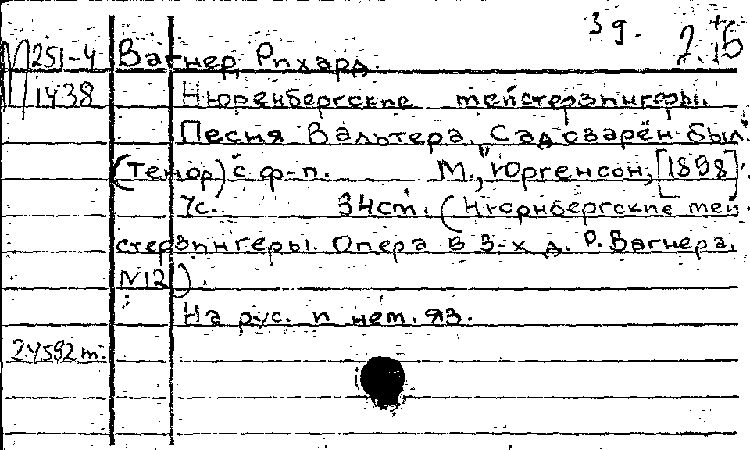 3 д.
М 251-4 Вагнер, Рихард.
1438 Нюренбергские мейстерзингеры.
Песня Вальтера. "Сад озарён был"
(Тенор) с ф-п. М., Юргенсон, [1898].
7с. 34см. (Нюрнбергские мей-
стерзингеры. Опера в 3-х д. Р. Вагнера.
N12).
На рус. и нем. яз.
24592 т.